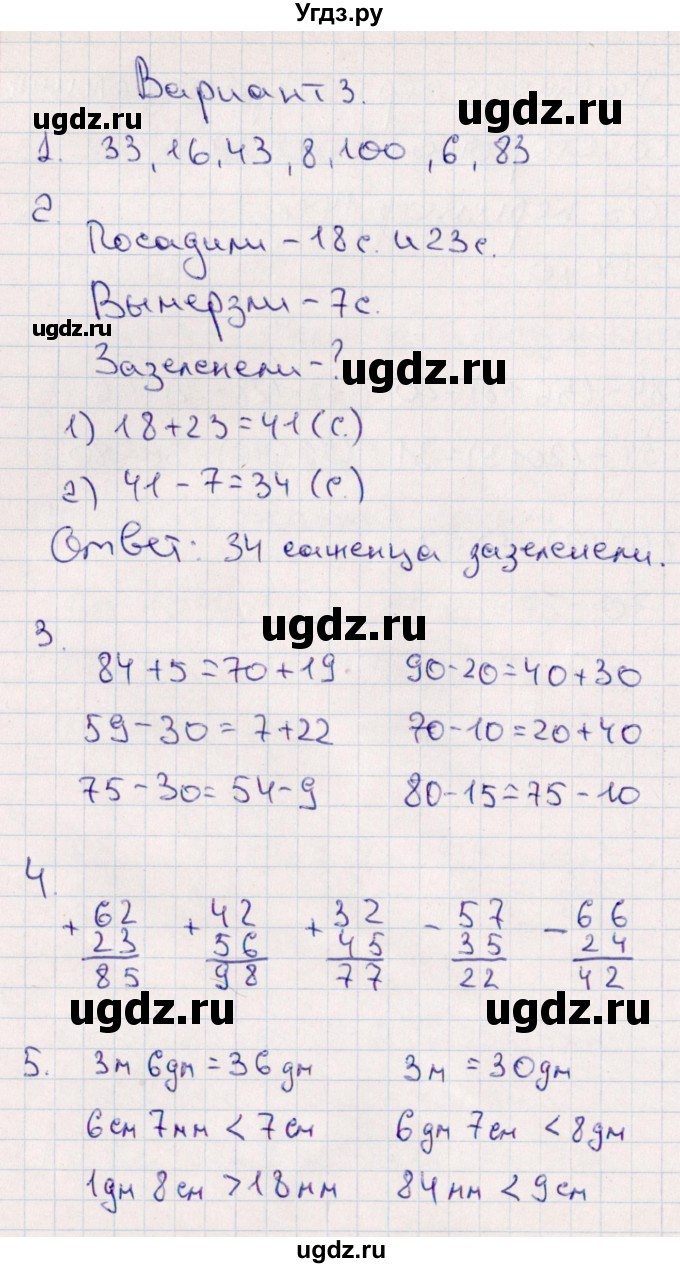 Угдз.ру
Вариант 3.
ugdz.ru ugdz.ru
1. 33, 16, 43, 8, 100, 6, 83
2.
Посадили - 18 с. и 23 с.
Вымерзли - 7 с.
ugdz.ru
Зазеленели - ?
ugdz.ru
1) 18 + 23 = 41 (с.)
2) 41 - 7 = 34 (с.)
Ответ: 34 саженца зазеленели.
ugdz.ru
3.
84 + 5 = 70 + 19 90 - 20 = 40 + 30
59 - 30 = 7 + 22 70 - 10 = 20 + 40
75 - 30 = 54 - 9 80 - 15 = 75 - 10
4.
+ 62 + 42 + 32 - 57 - 66
23 56 45 35 24
85 98 77 22 42
ugdz.ru ugdz.ru
5. 3 м 6 дм = 36 дм 3 м = 30 дм
6 см 7 мм < 7 см 6 дм 7 см < 8 дм
1 дм 8 см > 18 мм 84 мм < 9 см
ugdz.ru